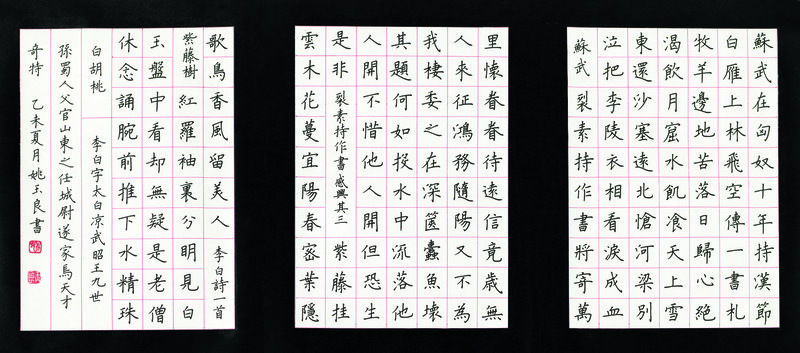 蘇武在匈奴十年持漢節
白雁上林飛空傳一書札
牧羊邊地苦落日歸心絕
渴飲月窟水飢飡天上雪
東還沙塞遠北愴河梁別
泣把李陵衣相看淚成血
蘇武 裂素持作書將寄萬
里懷眷眷待遠信竟歲無
人來征鴻務隨陽又不為
我棲委之在深篋蠹魚壞
其題何如投水中流落他
人開不惜他人開但恐生
是非 裂素持作書感興其三 紫藤挂
雲木花蔓宜陽春密葉隱
歌鳥香風留美人 李白詩一首
紫藤樹 紅羅袖裏分明見白
玉盤中看却無疑是老僧
休念誦腕前推下水精珠
白胡桃 李白字太白凉武昭王九世
孫蜀人父官山東之任城尉遂家焉天才
奇特 乙未夏月姚玉良書